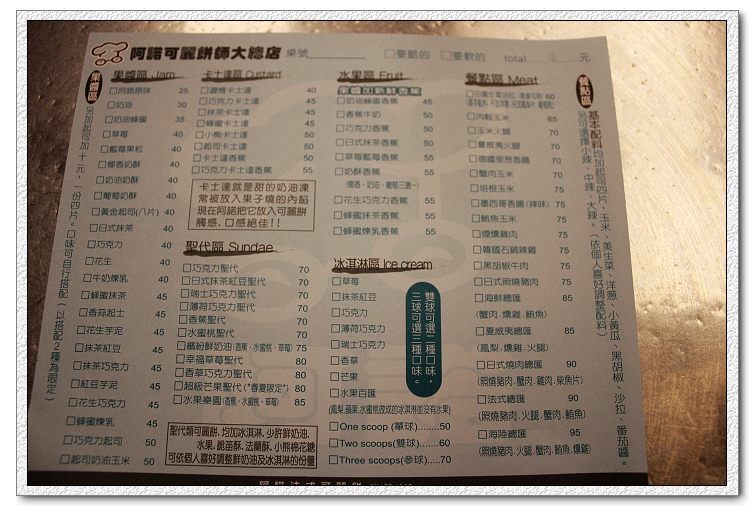 阿諾可麗餅師大總店 桌號 □要脆的 □要軟的 total 元
果醬區
另加起司加十元,一份四片。口味可自行搭配(以搭配2種為限定)
果醬區 Jam
□阿諾原味 25
□奶油 30
□奶油蜂蜜 35
□草莓 40
□藍莓果粒 40
□椰香奶酥 40
□奶油奶酥 40
□葡萄奶酥 40
□黃金起司(八片) 40
□日式抹茶 40
□巧克力 40
□花生 40
□牛奶煉乳 40
□蜂蜜抹茶 45
□香蒜起士 45
□花生芋泥 45
□抹茶紅豆 45
□抹茶巧克力 45
□紅豆芋泥 45
□花生巧克力 45
□蜂蜜煉乳 45
□巧克力起司 50
□起司奶油玉米 50
卡士達區 Custard
□濃情卡士達 40
□巧克力卡士達 50
□抹茶卡士達 50
□蜂蜜卡士達 50
□小熊卡士達 50
□起司卡士達 50
□卡士達香蕉 50
□巧克力卡士達香蕉 55
卡士達就是甜的奶油凍
常被放入果子燒的內餡
現在阿諾把它放入可麗餅
觸感、口感絕佳!!
聖代區 Sundae
□巧克力聖代 70
□日式抹茶紅豆聖代 70
□瑞士巧克力聖代 70
□薄荷巧克力聖代 70
□香蕉聖代 70
□水蜜桃聖代 70
□繽紛鮮奶油(香蕉、水蜜桃、草莓) 75
□幸福草莓聖代 80
□香草巧克力聖代 80
□超級芒果聖代("春夏限定") 80
□水果樂園(香蕉、水蜜桃、草莓) 85
聖代類可麗餅、均加冰淇淋、少許鮮奶油、
水果、脆笛酥、法蘭酥、小熊棉花糖
可依個人喜好調整鮮奶油及冰淇淋的份量
水果區 Fruit
果醬加新鮮香蕉
□奶油蜂蜜香蕉 45
□香蕉牛奶 50
□巧克力香蕉 50
□日式抹茶香蕉 50
□草莓鮮奶香蕉 55
□奶酥香蕉 55
(椰香、奶油、葡萄三選一)
□花生巧克力香蕉 55
□蜂蜜抹茶香蕉 55
□蜂蜜煉乳香蕉 55
冰淇淋區 Ice cream
□草莓
□抹茶紅豆
□巧克力
□薄荷巧克力
□瑞士巧克力
□香草
□芒果
□水果百匯
(鳳梨、蘋果、水蜜桃做成的冰淇淋並沒有水果)
雙球可選二種口味,
三球可選三種口味。
□One scoop (單球)........50
□Two scoops(雙球)......60
□Three scoops(參球).....70
餐點區 Meat
60
□肉鬆玉米 65
□玉米火腿 70
□夏威夷火腿 70
□德國里昂香腸 70
□蟹肉玉米 70
□培根玉米 75
□墨西哥香腸(辣味) 75
□鮪魚玉米 75
□煙燻雞肉 75
□韓國石鍋辣雞 75
□黑胡椒牛肉 75
□日式照燒豬肉 75
□海鮮總匯 85
(蟹肉、燻雞、鮪魚)
□夏威夷總匯 85
(鳳梨、燻雞、火腿)
□日式燒肉總匯 90
(照燒豬肉、蟹肉、雞肉、柴魚片)
□法式總匯 90
(照燒豬肉、火腿、蟹肉、鮪魚)
□海陸總匯 95
(照燒豬肉、火腿、蟹肉、鮪魚、燻雞)
餐點區
基本配料均加起司四片、玉米、美生菜、洋蔥、小黃瓜、黑胡椒、沙拉、番茄醬。
另可選擇小辣、中辣、大辣。(依個人喜好調整配料)